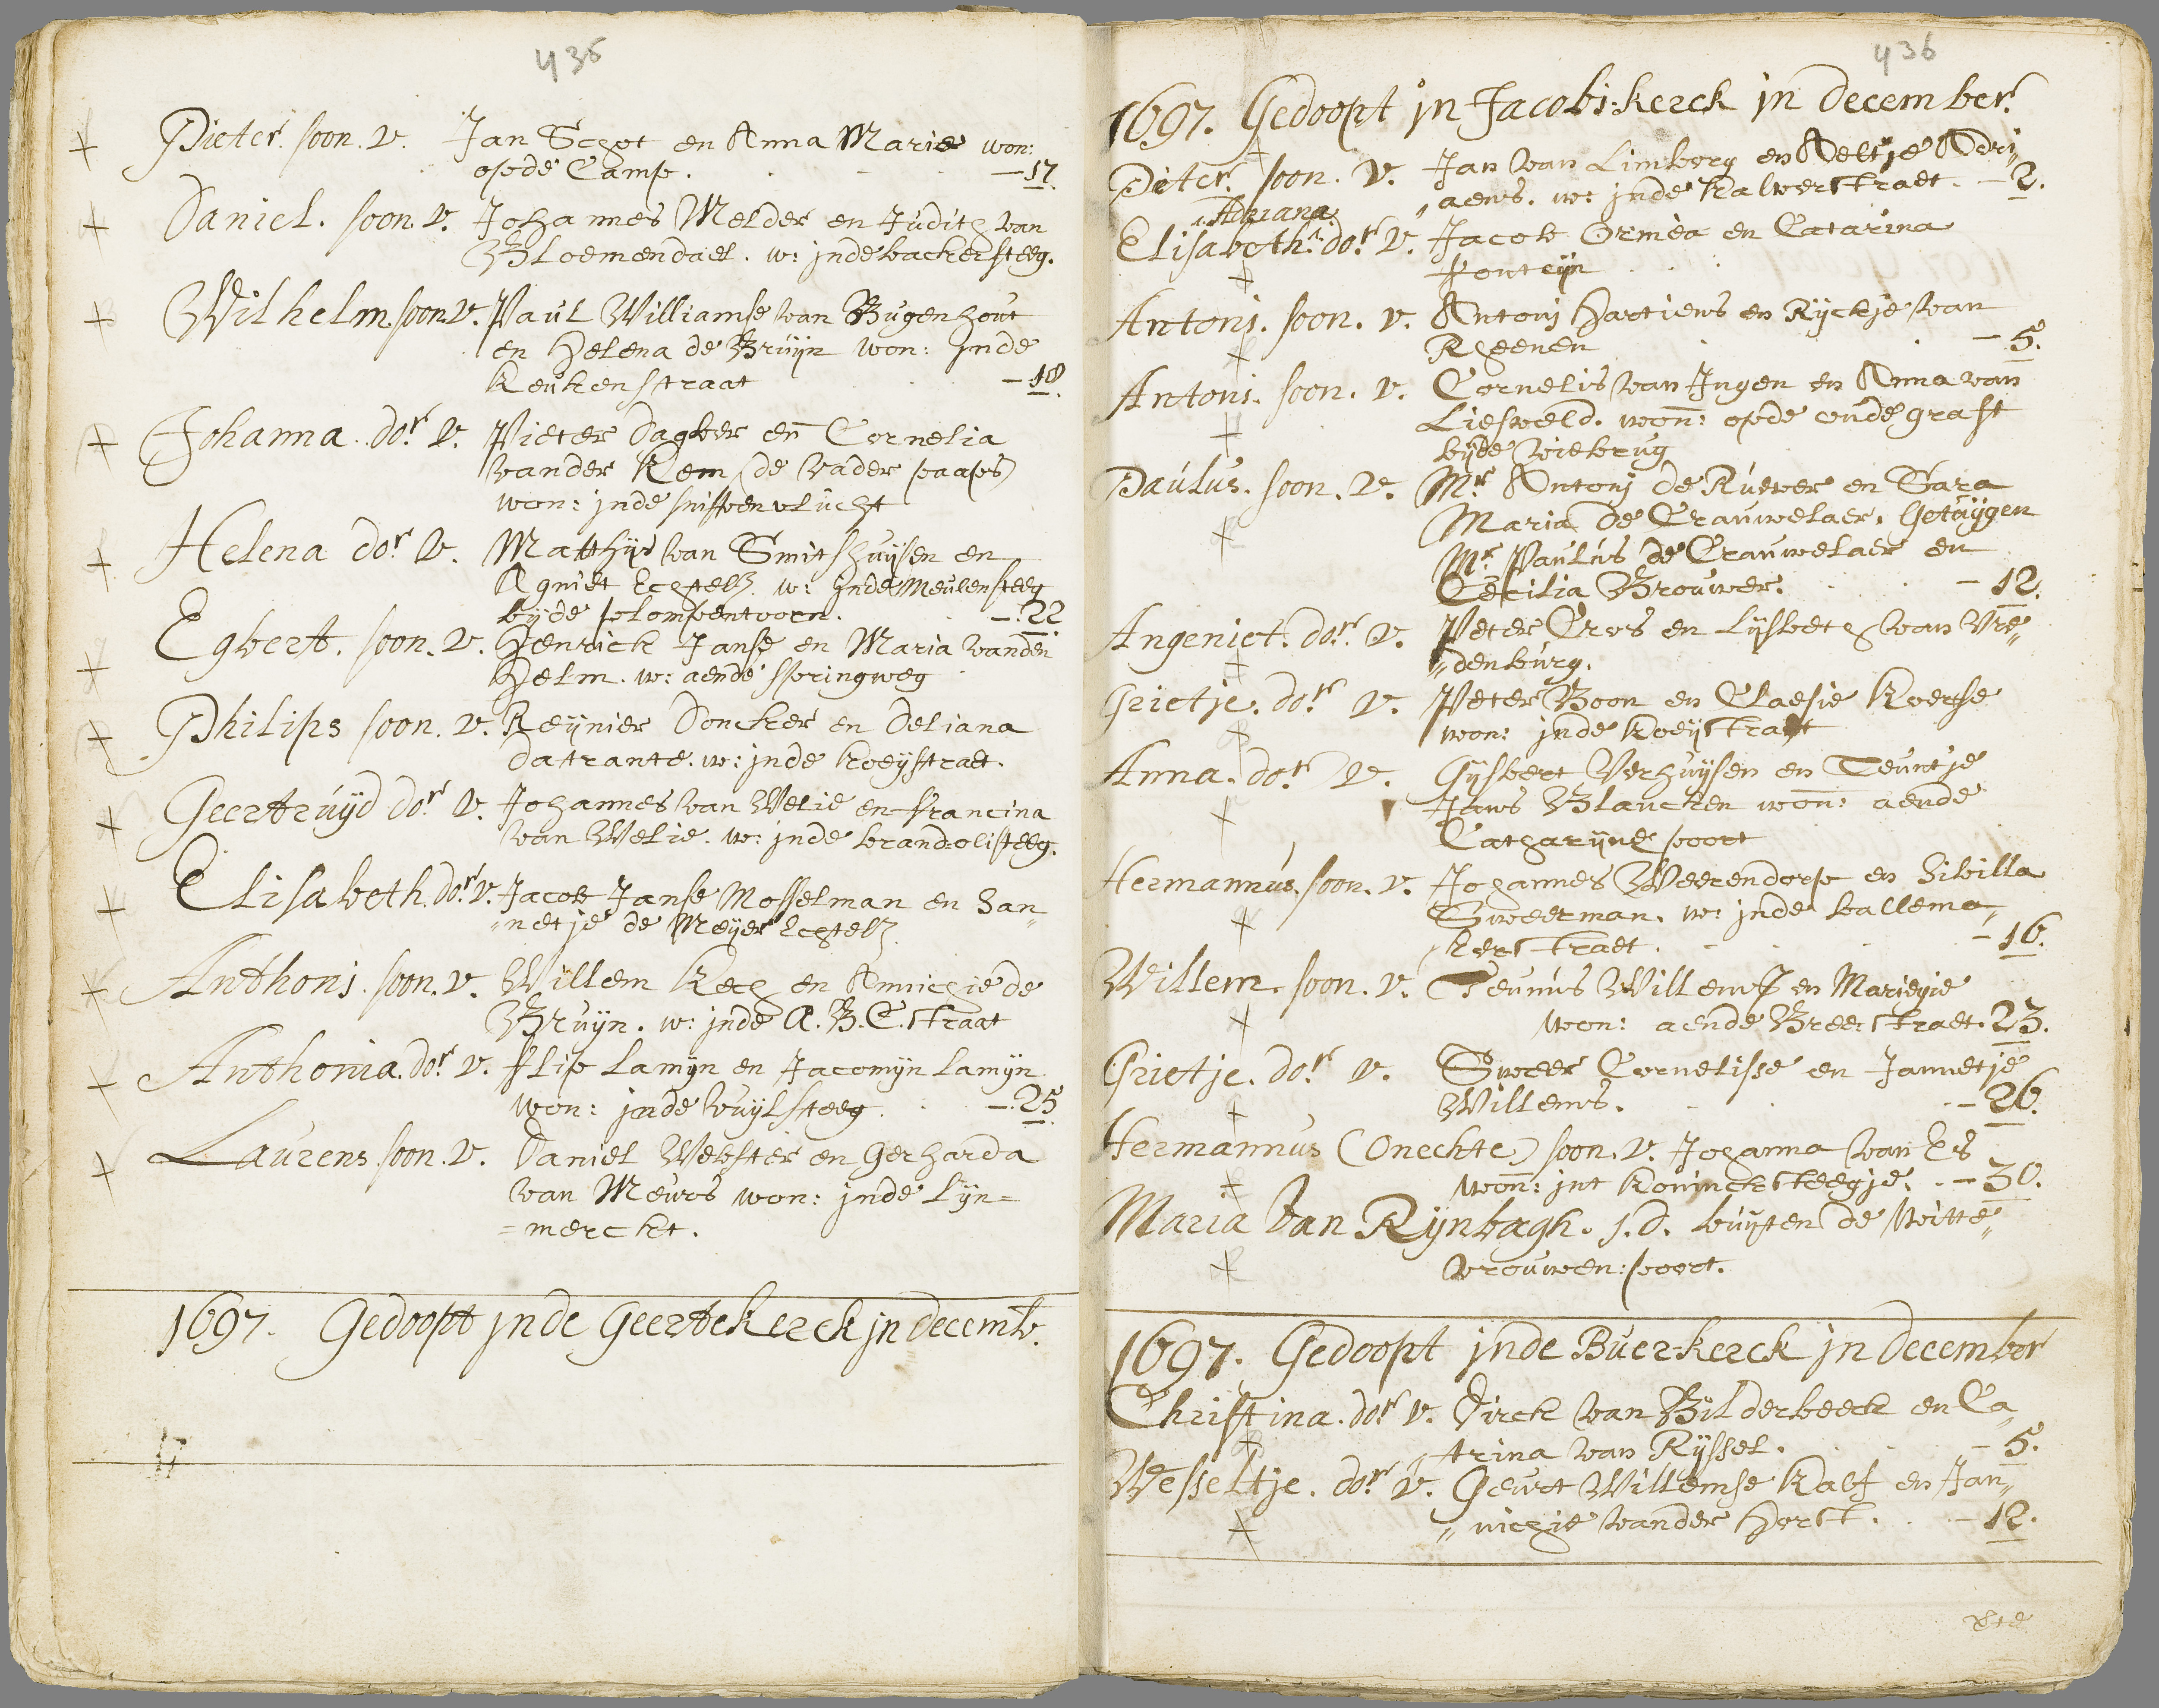 436
Pieter. soon. v. Jan Schot en Anna Marie won:
opde Camp. - 17.
Daniel. soon. v. Johannes Melder en Judith van
Bloemendael. w: jnde backersteeg.
Wilhelm. soon. v. Paul Williamse van Bugenhout
en Helena de Bruijn won: jnde
Keukenstraat - 18.
Johanna. dor. v. Pieter Dagber en Cornelia
vander Kem (de vader paaps)
won: jnde snippenvlucht
Helena dor v. Matthijs van Smitshuijsen en
Agniet Echtelt. w: jnde Meulensteeg
bijde plompentoorn. - 22
Egbert. soon. v. Henrick Janse en Maria vanden
Helm. w: aende springweg
Philips soon. v. Reynier Doncker en Deliana
Datrante. w: jnde koeystraet.
Geertruijd dor v. Johannes van Welie en Francina
van Welie. w: jnde brandolisteeg.
Elisabeth. dor v. Jacob Janse Mosselman en Han„
„netje de Meyer Echtelt
Anthonj. soon. v. Willem Kech en Annichie de
Bruijn. w: jnde A. B. C. straat
Anthonia. dor v. Flip Lamyn en Jacomyn Lamyn
won: jnde vuylsteeg. - 25
Laurens soon. v. Daniel Webster en Gerharda
van Meurs won: jnde Lyn=
=merckt.
1697. Gedoopt jnde Geertekerck jn decemb.
436
1697. Gedoopt jn Jacobj:kerck jn december.
Pieter. soon. v. Jan van Limborg en Aeltje Adri„
„aens. w: jnde Kalverstraet. - 2.
Adriana
Elisabeth. dor v. Jacob Ormea en Catarina
Fonteijn
Antonj. soon. v. Antonj Hartiens en Ryckje van
Rheenen - 5.
Antonj. soon. v. Cornelis van Jngen en Anna van
Liesveld. won: opde oude graft
bijde viebrug
Paulus. soon. v. Mr Antonj de Ruever en Sara
Maria de Crauwelaer. Getuijgen
Mr Paulus de Crauwelaer en
Cecilia Brouwer. - 12.
Angeniet. dor. v. Peter Ervs en Lijsbeth van Vre„
„denburg.
Grietje. dor v. Peter Boon en Claesie Koerse
won: jnde Koeystraet
Anna. dor v. Gijsbert Verhuijsen en Teuntje
Jans Blancken won: aende
Catharijne poort
Hermannus. soon. v. Johannes Weerendorp en Sibilla
Sweerman. w: jnde ballema„
„kerstraet. - 16.
Willem. soon. v. Teunus Willemse en Mariegie
won: aende Breestraet. 23.
Grietje. dor v. Sweer Cornelisse en Jannetje
Willems. - 26.
Hermannus (Onechte) soon. v. Johanna van Es
won: jnt Konincksteegje. - 30.
Maria Van Rynbagh. j. d. buijten de Witte„
vrouwen:poort.
1697. Gedoopt jnde Buer-kerck jn december
Christina. dor v. Dirck van Bilderbeeck en Ca„
„trina van Ryssel. - 5.
Wesseltje. dor v. Geurt Willemse Kalf en Jan„
„nichie vander Horst. - 12.